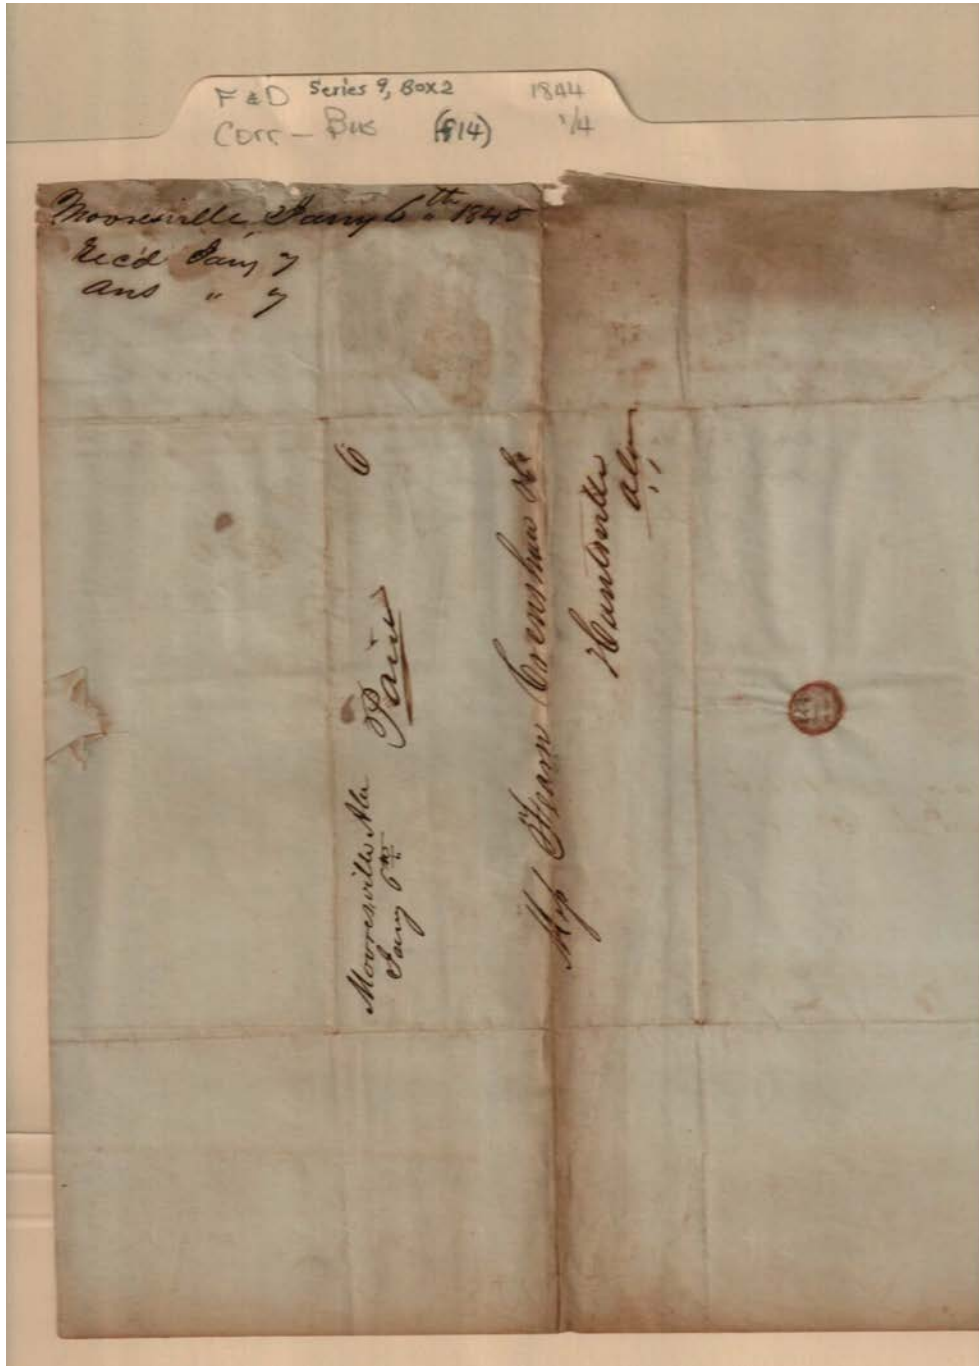 F & D Series 9, Box 2 1844
Corr - Bus (f14) 1/4
Mooresville, Jany 6th 1845
Rec'd Jany 7
Ans " 7
Mooresville Ala
Jany 6th
Paid 6
Mess Fearn Crenshaw & Co
Huntsville
Ala